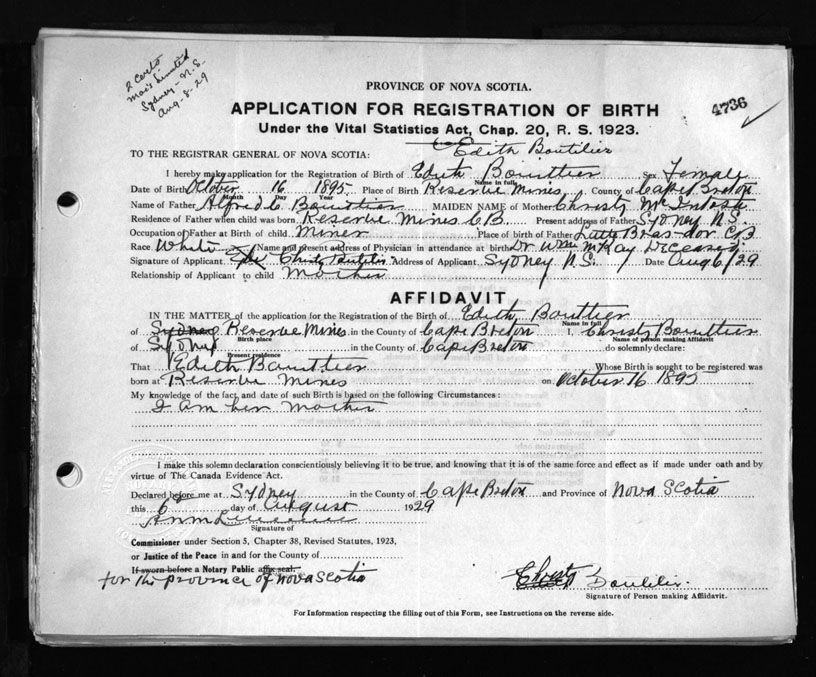 2 Certs
Sydney - N.S.
Aug-8-29
PROVINCE OF NOVA SCOTIA.
4736
APPLICATION FOR REGISTRATION OF BIRTH
Under the Vital Statistics Act, Chap. 20, R. S. 1923.
Edith Boutilier
TO THE REGISTRAR GENERAL OF NOVA SCOTIA:
I hereby make application for the Registration of Birth of Edith Bouttier Sex Female
Name in full
Date of Birth October 16 1895 Place of Birth Reserve Mines County of Cape Breton
Month Day Year
Name of Father Alfred C Bouttier MAIDEN NAME of Mother Christy McIntosh
Residence of Father when child was born Reserve Mines CB Present address of Father Sydney N.S.
Occupation of Father at Birth Miner Place of birth of Father Little Bras-dor CB
Race White Name and present address of Physician in attendance at birth Dr Wm McKay Deceased
Signature of Applicant Christy Boutilier Address of Applicant Sydney N.S. Date Aug 6/29
Relationship of Applicant to child Mother
AFFIDAVIT
IN THE MATTER of the application for the Registration of the Birth of Edith Bouttier
Name in full
of Sydney Reserve Mines in the County of Cape Breton I, Christy Bouttier
Birth place Name of person making Affidavit
of Sydney in the County of Cape Breton do solemnly declare:
Present residence
That Edith Bouttier Whose Birth is sought to be registered was
born at Reserve Mines on October 16 1895
My knowledge of the fact, and date of such Birth is based on the following Circumstances:
I am her mother
I make this solemn declaration conscientiously believing it to be true, and knowing that it is of the same force and effect as if made under oath and by
virtue of The Canada Evidence Act.
Declared before me at Sydney in the County of Cape Breton and Province of Nova Scotia
this 6 day of August 1929
Signature of
Commissioner under Section 5, Chapter 38, Revised Statutes, 1923,
or Justice of the Peace in and for the County of
If sworn before a Notary Public affix seal.
for the province of Nova Scotia
Christy Boutilier
Signature of Person making Affidavit.
For Information respecting the filling out of this Form, see Instructions on the reverse side.